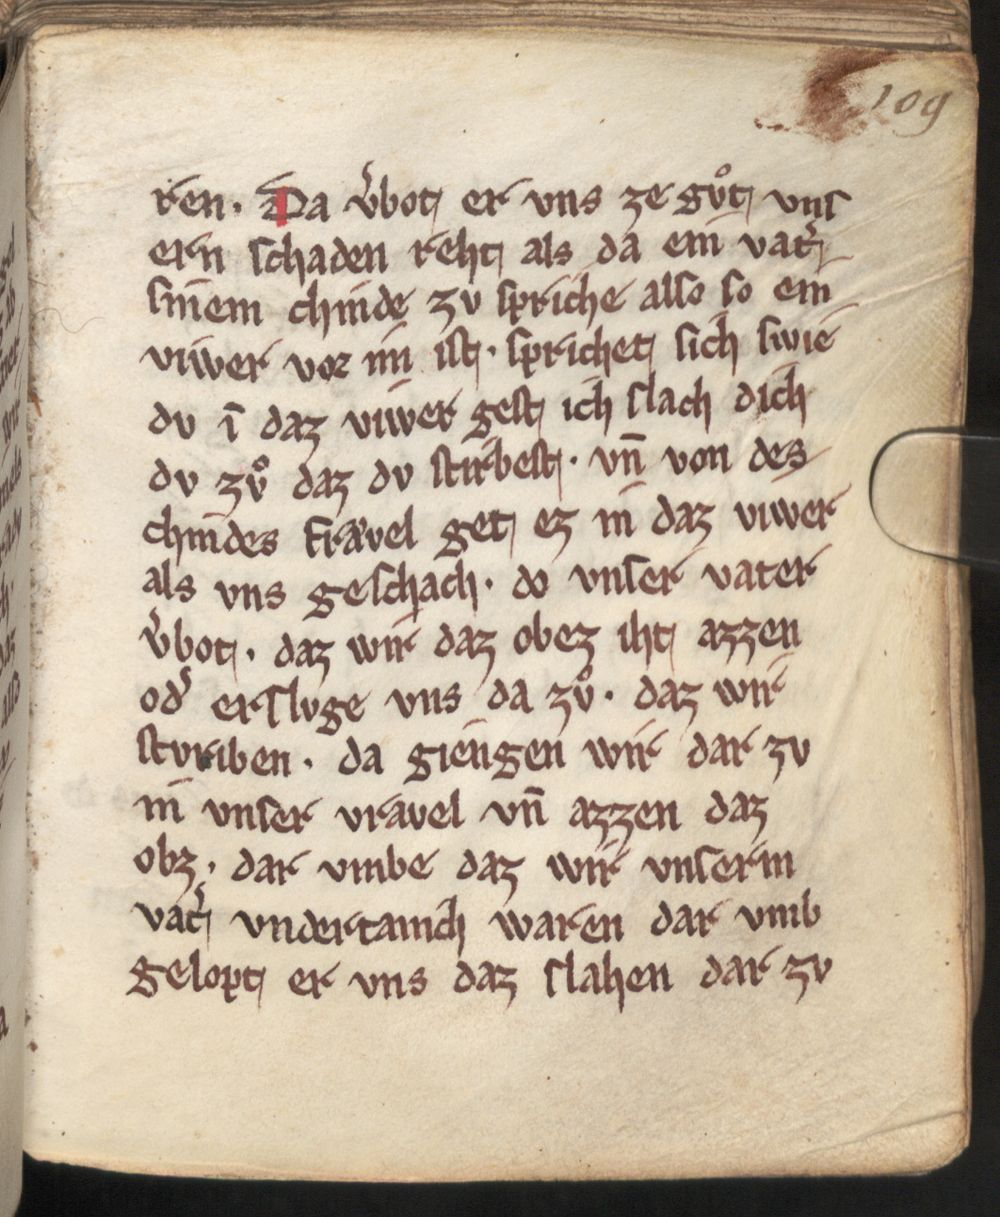 109
ren. Da v̾bot er vns ze gvͦt vnſ
ern ſchaden reht als da ein vat̾
ſinem chinde zv ſpriche alſo ſo ein
viwer vor im iſt. ſprichet ſich ſwie
dv ī daz viwer geſt ich ſlach dich
dv zvͦ daz dv ſtirbeſt. vn̄ von des
chindes frävel get ez in daz viwer
als vns geſchach. do vnſer vater
v̾bot. daz wir daz obez iht azzen
od̾ er ſlvge vns da zvͦ. daz wir
ſtvriben. da giengen wir dar zv
in vnſer vravel vn̄ azzen daz
obz. dar vmbe daz wir vnſerm
vat̾ vndertanich waren dar vmb
gelopt er vns daz ſlahen dar zv